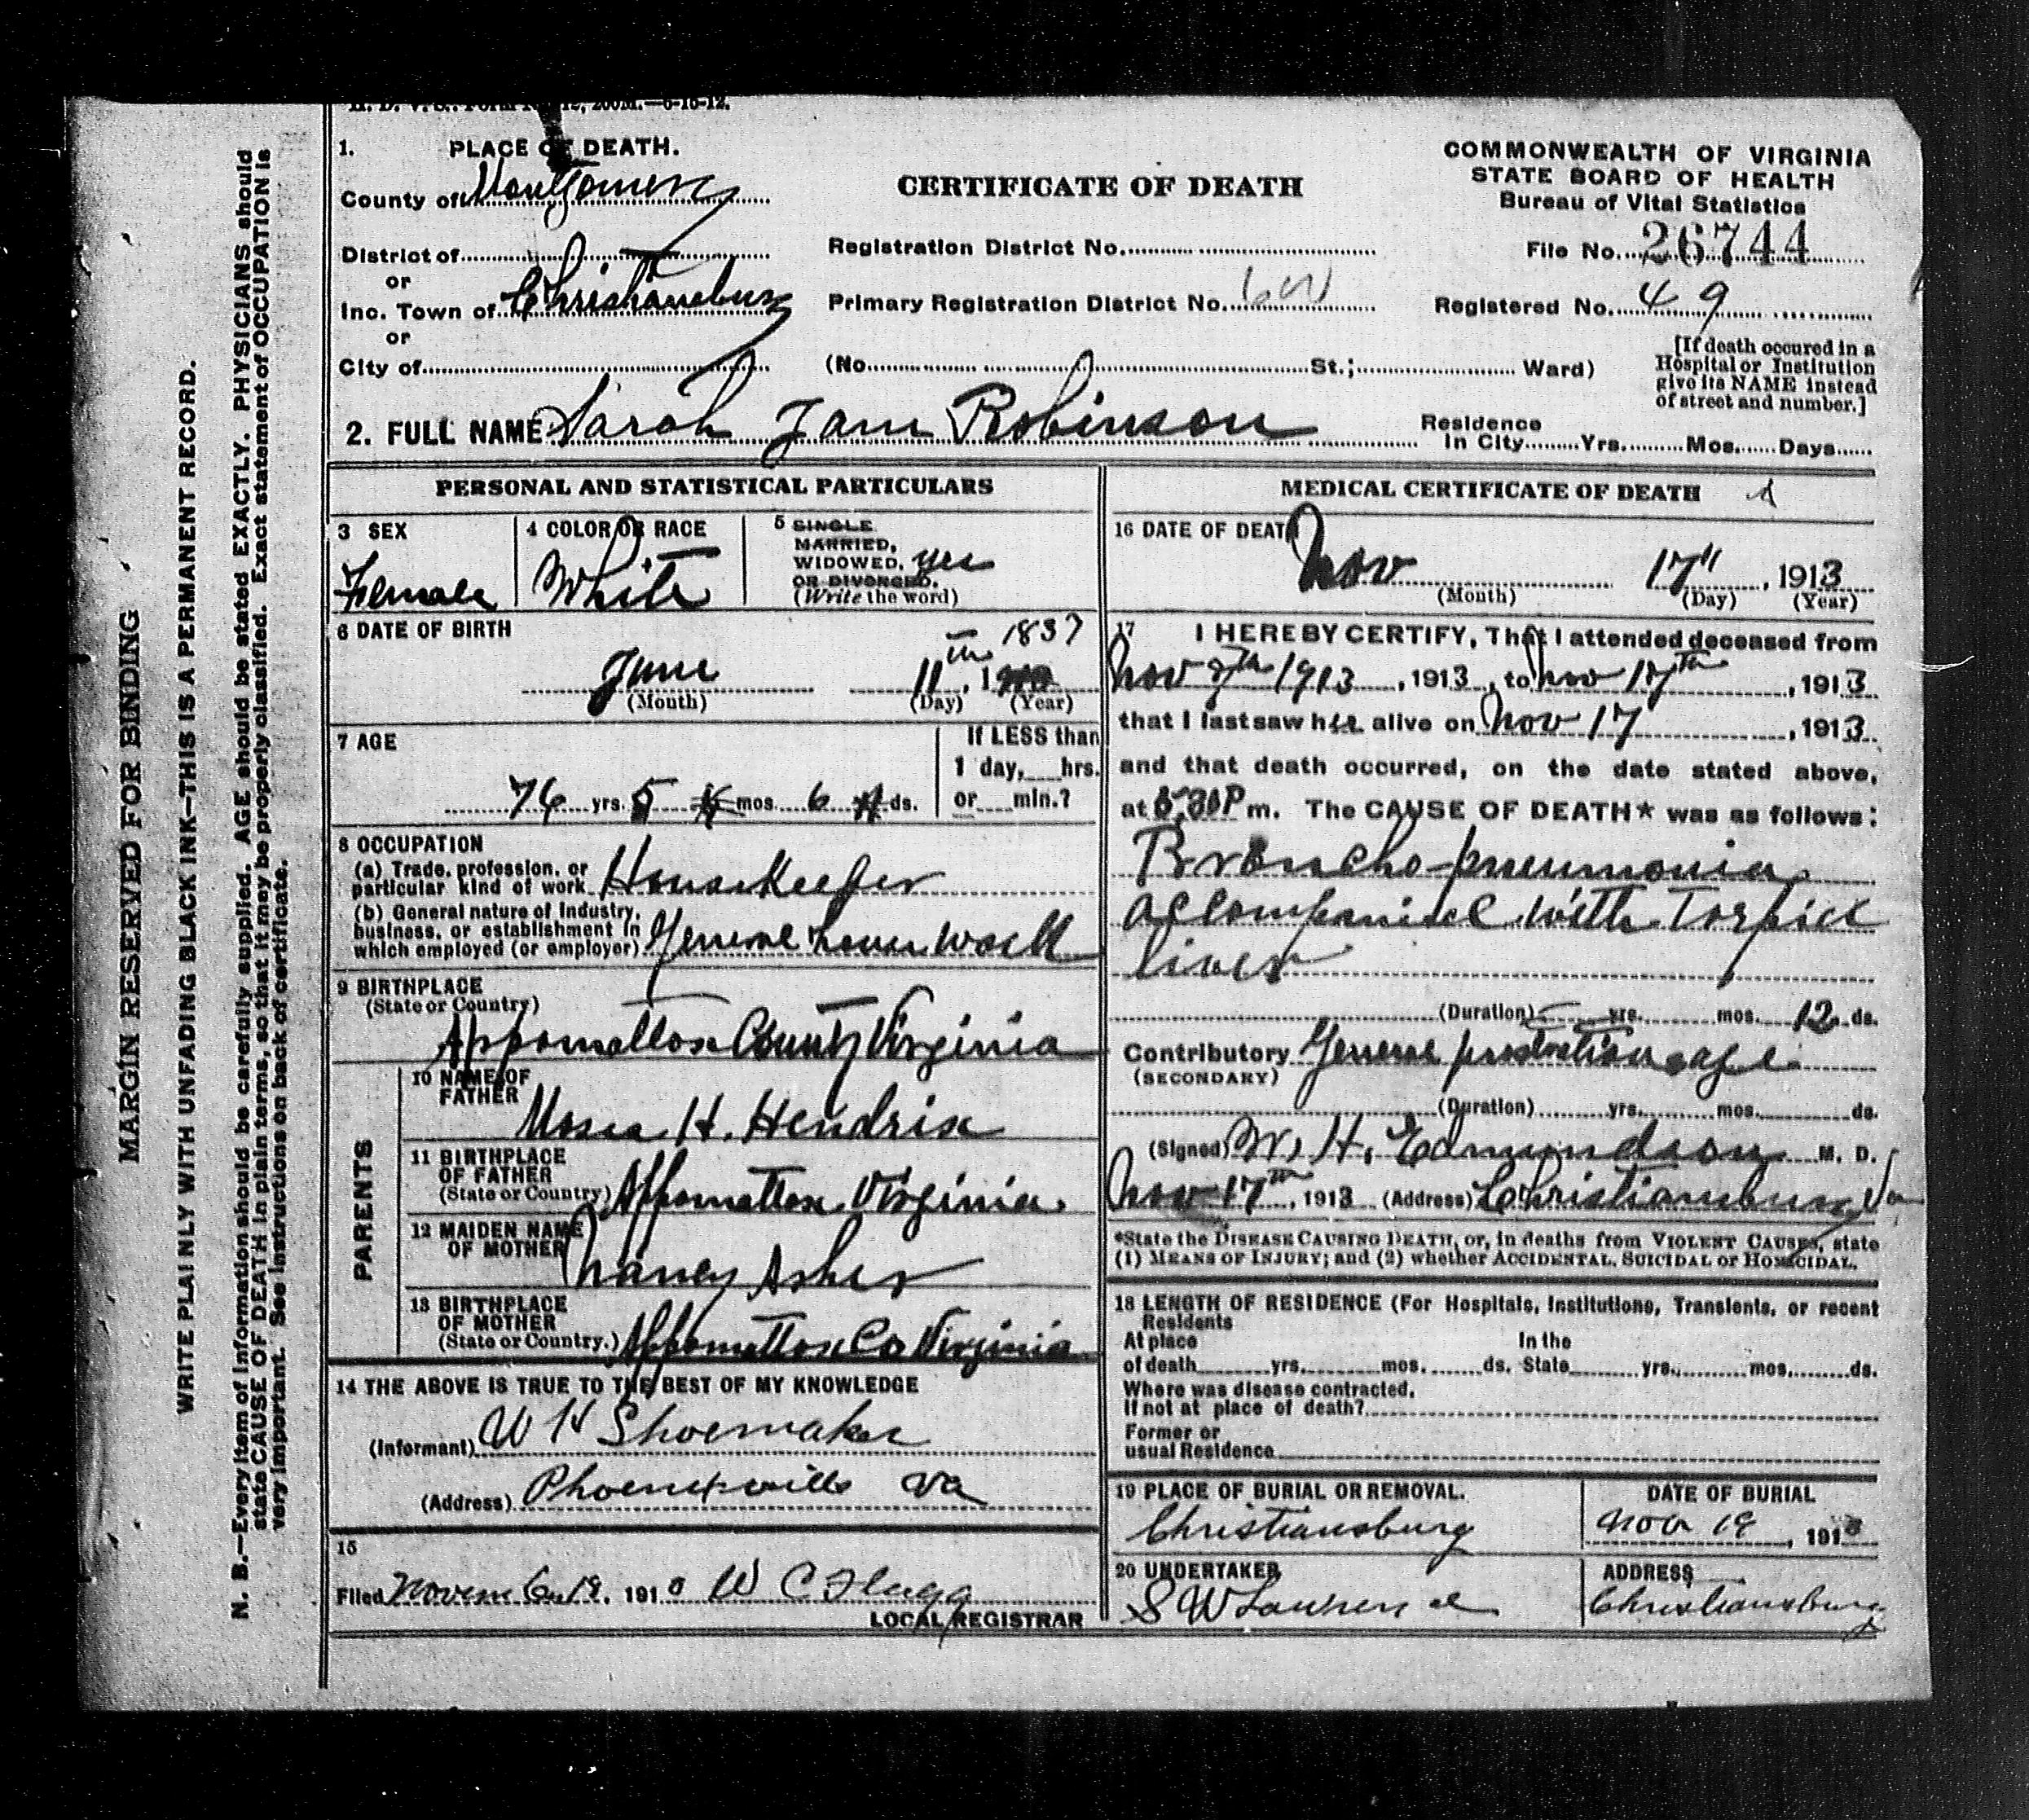 1. PLACE OF DEATH.
County of Montgomery
District of
or
Inc. Town of Christiansburg
or
City of
CERTIFICATE OF DEATH
Registration District No.
Primary Registration District No.
(No. St.; Ward)
COMMONWEALTH OF VIRGINIA
STATE BOARD OF HEALTH
Bureau of Vital Statistics
File No. 26744
Registered No. 49
[If death occured in a
Hospital or Institution
give its NAME instead
of street and number.]
2. FULL NAME Sarah Jane Robinson
Residence
In City Yrs. Mos. Days
PERSONAL AND STATISTICAL PARTICULARS
3 SEX
Female
4 COLOR OR RACE
White
5 SINGLE
MARRIED,
WIDOWED, yes
OR DIVORCED.
(Write the word)
6 DATE OF BIRTH
June 11th, 1837
(Month) (Day) (Year)
7 AGE
76 yrs. 5 mos. 6 ds.
If LESS than
1 day, hrs.
or min.?
8 OCCUPATION
(a) Trade, profession, or
particular kind of work Housekeeper
(b) General nature of Industry,
business, or establishment in
which employed (or employer) General house work
9 BIRTHPLACE
(State or Country)
Appomattox County Virginia
PARENTS
10 NAME OF
FATHER
Moses H. Hendrix
11 BIRTHPLACE
OF FATHER
(State or Country) Appomattox Virginia.
12 MAIDEN NAME
OF MOTHER
Nancy Asher
13 BIRTHPLACE
OF MOTHER
(State or Country.) Appomattox Co Virginia
14 THE ABOVE IS TRUE TO THE BEST OF MY KNOWLEDGE
(Informant) W H Shoemaker
(Address) Phoenixville Va
15
Filed November 19, 1913 W C Flagg
LOCAL REGISTRAR
MEDICAL CERTIFICATE OF DEATH
16 DATE OF DEATH
Nov 17", 1913
(Month) (Day) (Year)
17 I HEREBY CERTIFY, That I attended deceased from
Nov 7th 1913, 1913, to Nov 17th, 1913
that I last saw her alive on Nov 17, 1913
and that death occurred, on the date stated above,
at 5.30 P m. The CAUSE OF DEATH* was as follows:
Broncho-pneumonia
accompanied with Torpid
liver
(Duration) yrs. mos. 12 ds.
Contributory General prostration age
(SECONDARY)
(Duration) yrs. mos. ds.
(Signed) W. H. Edmundson M. D.
Nov 17th, 1913 (Address) Christiansburg Va
*State the DISEASE CAUSING DEATH, or, in deaths from VIOLENT CAUSES, state
(1) MEANS OF INJURY; and (2) whether ACCIDENTAL, SUICIDAL or HOMICIDAL.
18 LENGTH OF RESIDENCE (For Hospitals, Institutions, Transients, or recent
Residents
At place In the
of death yrs. mos. ds. State yrs. mos. ds.
Where was disease contracted.
If not at place of death?
Former or
usual Residence
19 PLACE OF BURIAL OR REMOVAL.
Christiansburg
DATE OF BURIAL
Nov 19, 1913
20 UNDERTAKER
S W Lawrence
ADDRESS
Christiansburg
MARGIN RESERVED FOR BINDING
WRITE PLAINLY WITH UNFADING BLACK INK—THIS IS A PERMANENT RECORD.
N. B.—Every item of information should be carefully supplied. AGE should be stated EXACTLY. PHYSICIANS should
state CAUSE OF DEATH in plain terms, so that it may be properly classified. Exact statement of OCCUPATION is
very important. See instructions on back of certificate.